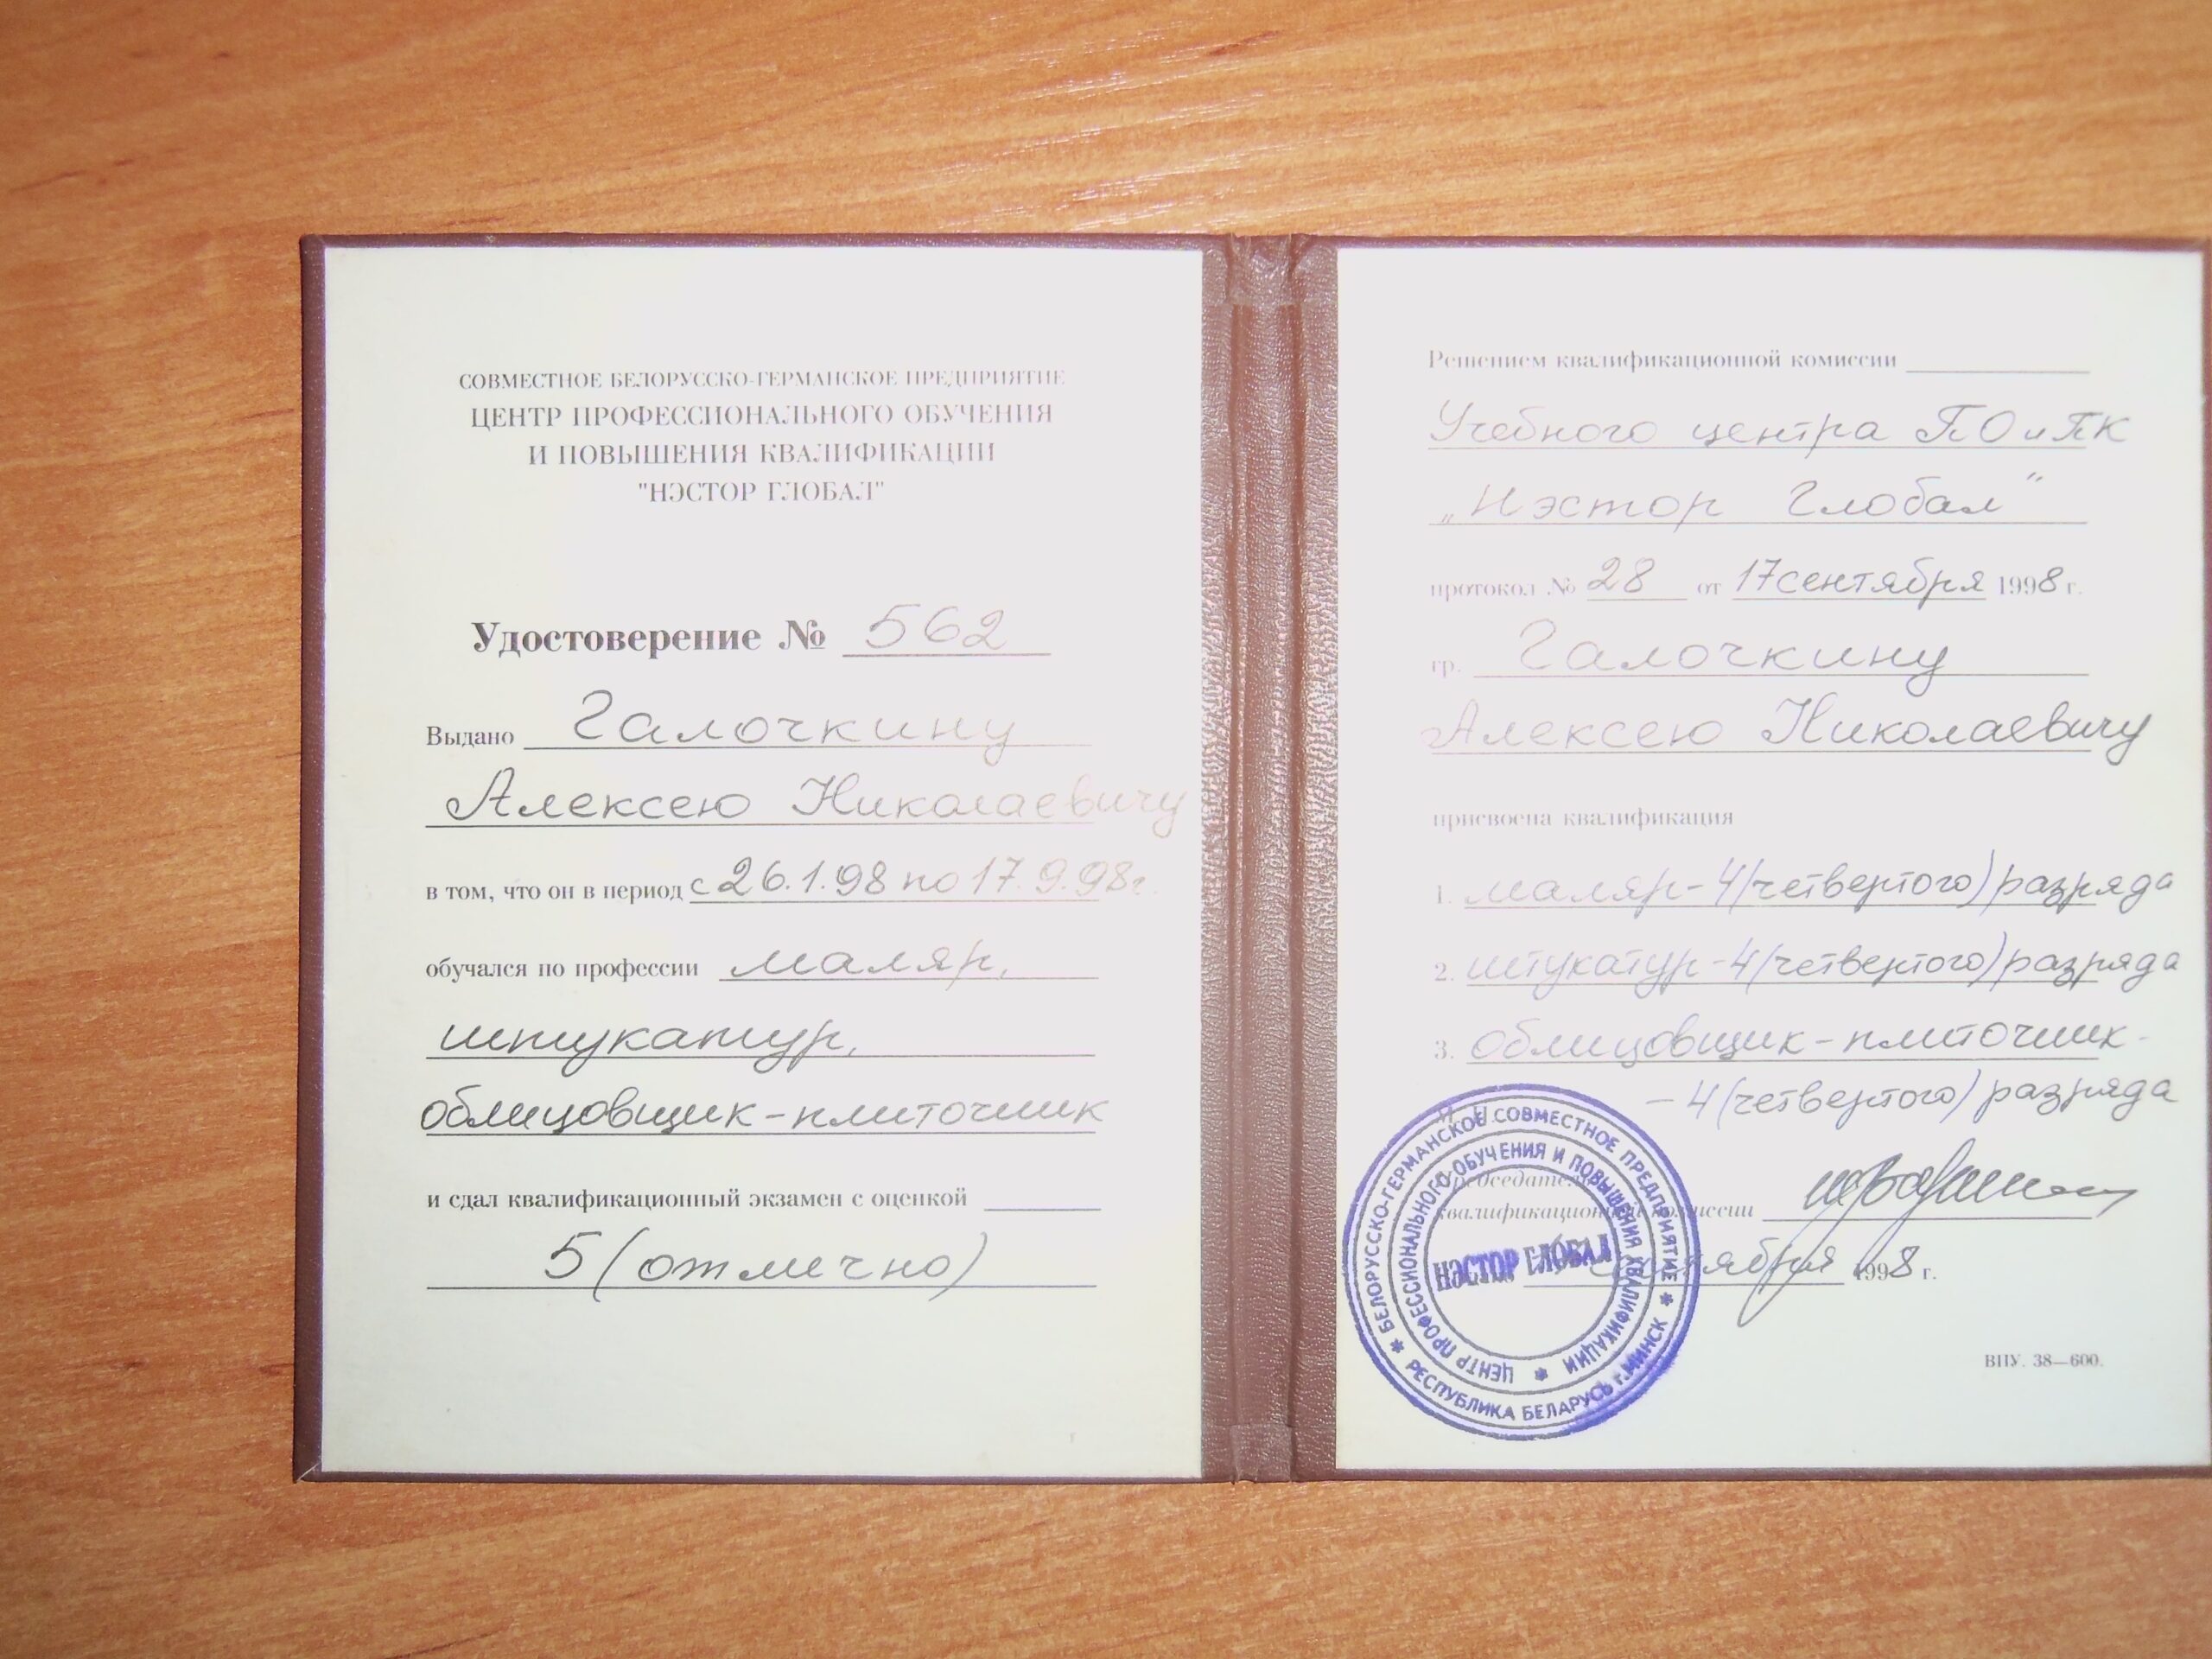 СОВМЕСТНОЕ БЕЛОРУССКО-ГЕРМАНСКОЕ ПРЕДПРИЯТИЕ
ЦЕНТР ПРОФЕССИОНАЛЬНОГО ОБУЧЕНИЯ
И ПОВЫШЕНИЯ КВАЛИФИКАЦИИ
"НЭСТОР ГЛОБАЛ"
Удостоверение № 562
Выдано Галочкину
Алексею Николаевичу
в том, что он в период с 26.1.98 по 17.9.98г.
обучался по профессии маляр,
штукатур,
облицовщик-плиточник
и сдал квалификационный экзамен с оценкой
5 (отлично)
Решением квалификационной комиссии
Учебного центра ПО и ПК
„Нэстор Глобал"
протокол № 28 от 17 сентября 1998 г.
гр. Галочкину
Алексею Николаевичу
присвоена квалификация
1. маляр - 4 (четвертого) разряда
2. штукатур - 4 (четвертого) разряда
3. облицовщик-плиточник -
- 4 (четвертого) разряда
Председатель
квалификационной комиссии
сентября 1998 г.
БЕЛОРУССКО-ГЕРМАНСКОЕ СОВМЕСТНОЕ ПРЕДПРИЯТИЕ * РЕСПУБЛИКА БЕЛАРУСЬ г.МИНСК *
ЦЕНТР ПРОФЕССИОНАЛЬНОГО ОБУЧЕНИЯ И ПОВЫШЕНИЯ КВАЛИФИКАЦИИ *
НЭСТОР ГЛОБАЛ
ВПУ. 38—600.